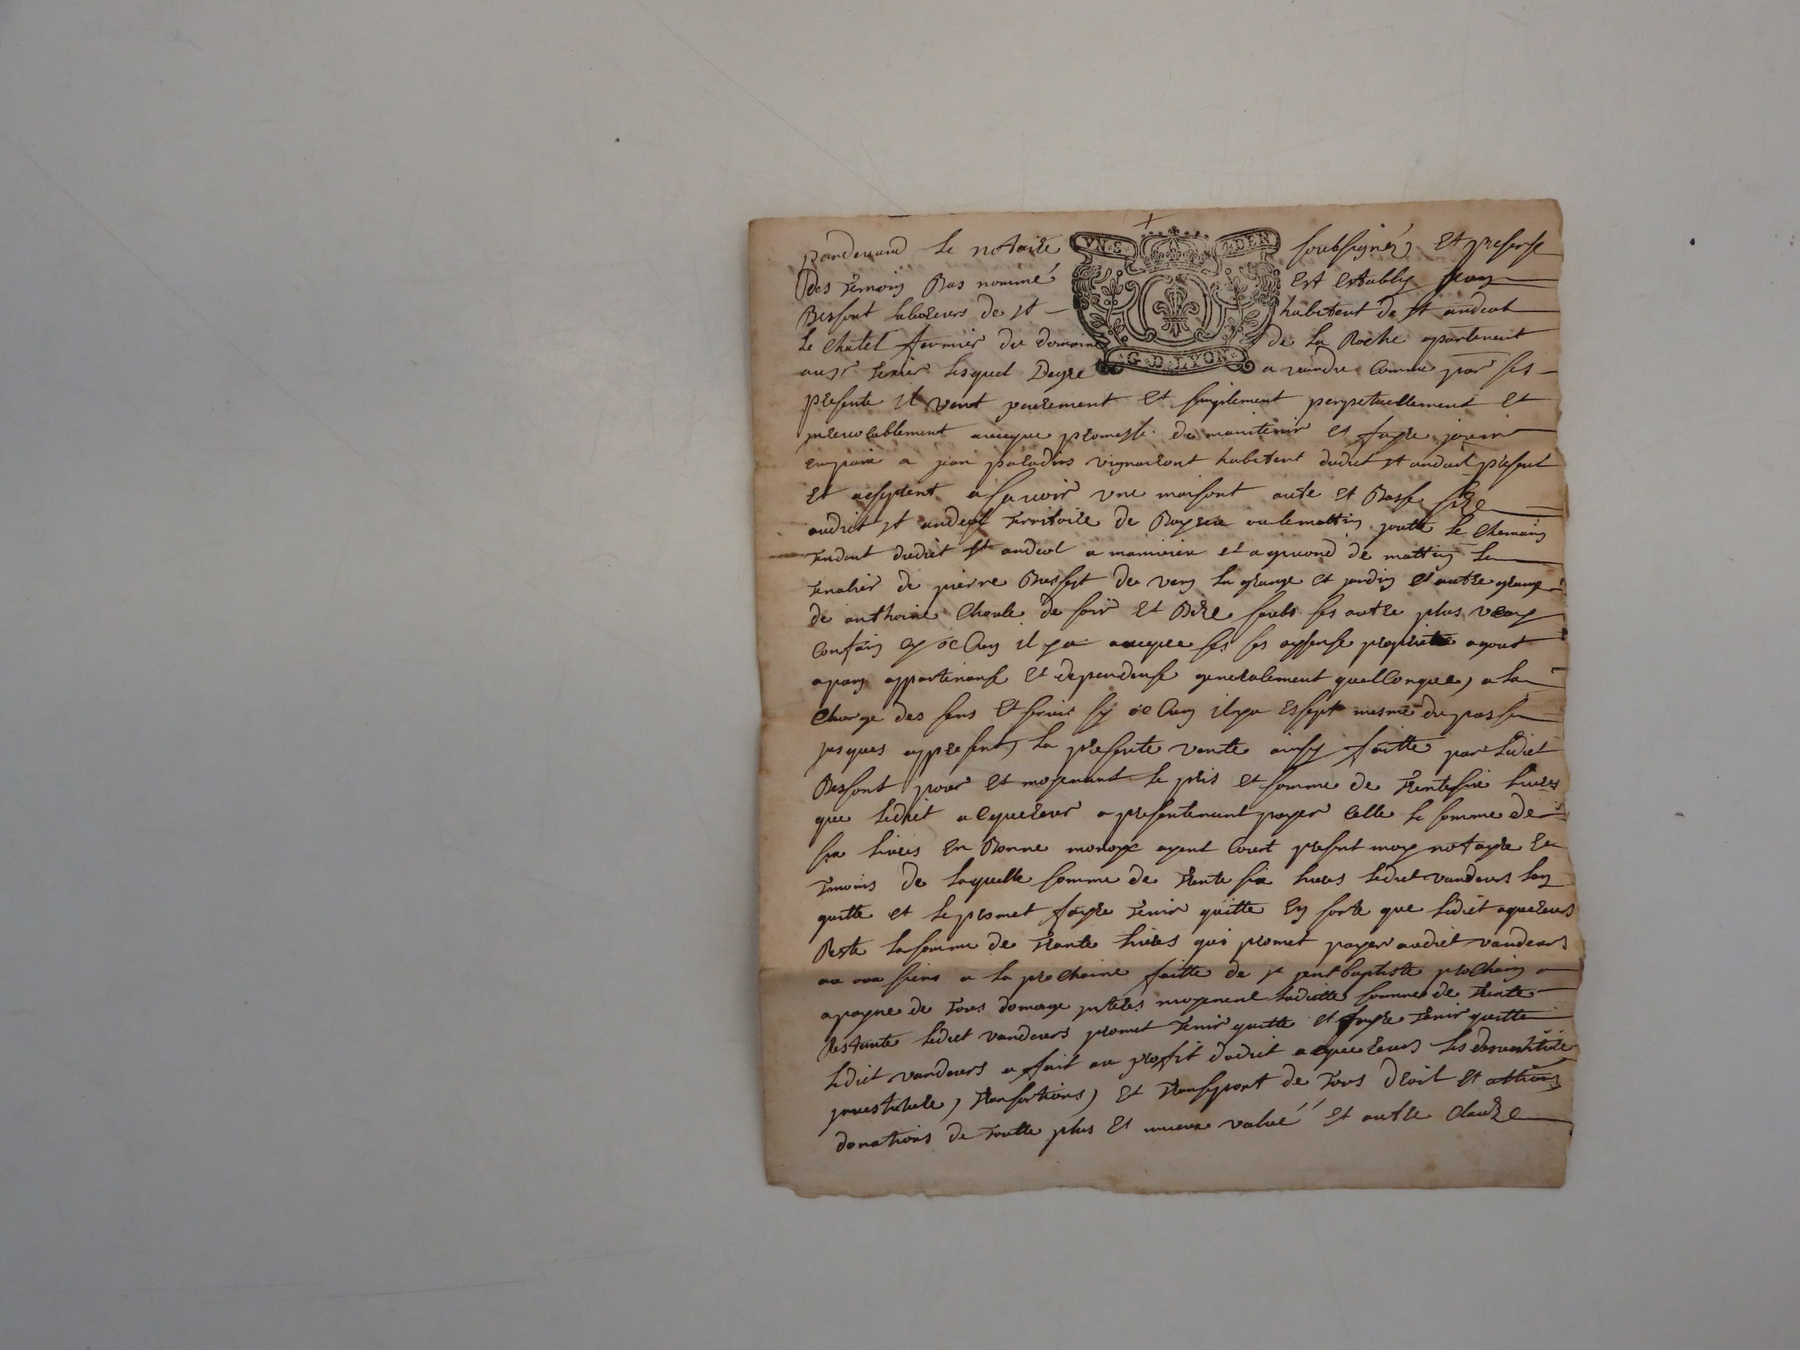 pandevand le notaire soubsignés Et presense
des temoins Bas nommé Est establÿ jean
VN.S. 4.DEN
Besfont laboreurs de st habitent de st andeol
le Chatel fermier du domaine de la Roche apartenent
G.D.LYON
lesquel Degre a vandre Comme par ses
presente il vent purement et simplement perpetuellement Et
jrrevocablement avecque promesse de maintenir et fayre jouir
en paix a jean paradis vigneront habitent dudict st andeol present
Et acseptent a sauoir vne maisont aute et Basse size
audict st andeol territoire de joutte le Chemain
tendent dudict st andeol a et de mattin le
de pierre de la grange et jardin et autre grange
de anthoine de soir Et Bize soubs ses autre plus vray
Confain sy aucun il y a ses propriette
appartenanse Et dependense generalement quelConque, a la
Charge des sens Et servis sy aucun il y a mesme du passé
jusques appresent, la presente vante ainsy faitte par ledict
Besfont pour Et moyenant le pris et somme de trente six livres
que ledict acquereur a presentenant payer Celle la somme de
six livres En Bonne monoye ayent Court presant moy notayre Et
temoins de laquelle somme de trente six livres ledict vandeurs lan
quitte et le promet fayre tenir quitte En sorte que ledict aquereurs
Reste la somme de trante livres qui promet payer audict vandeurs
ou aux siens a la prochaine faitte de st jent baptiste prochain
a payne de tous domage jnteres moyenent ladicte somme de trente
Restante ledict vandeurs promet tenir quitte et fayre tenir quitte
ledict vandeurs a fait au proffit dudict acquereurs les
jnvestiture, transactions, Et transport de tous droit Et actions
donations de toutte plus Et mieux value Et autre Clauze